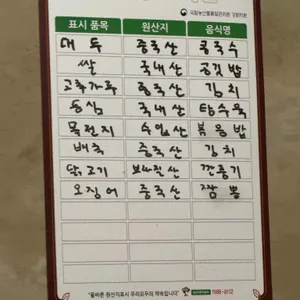 국립농산물품질관리원 경기지원
표시 품목 원산지 음식명
대두 중국산 콩국수
쌀 국내산 공깃밥
고추가루 중국산 김치
등심 국내산 탕수육
목전지 수입산 볶음밥
배추 중국산 김치
닭고기 브라질산 깐풍기
오징어 중국산 짬뽕
"올바른 원산지표시 우리모두의 약속입니다" 1588-8112